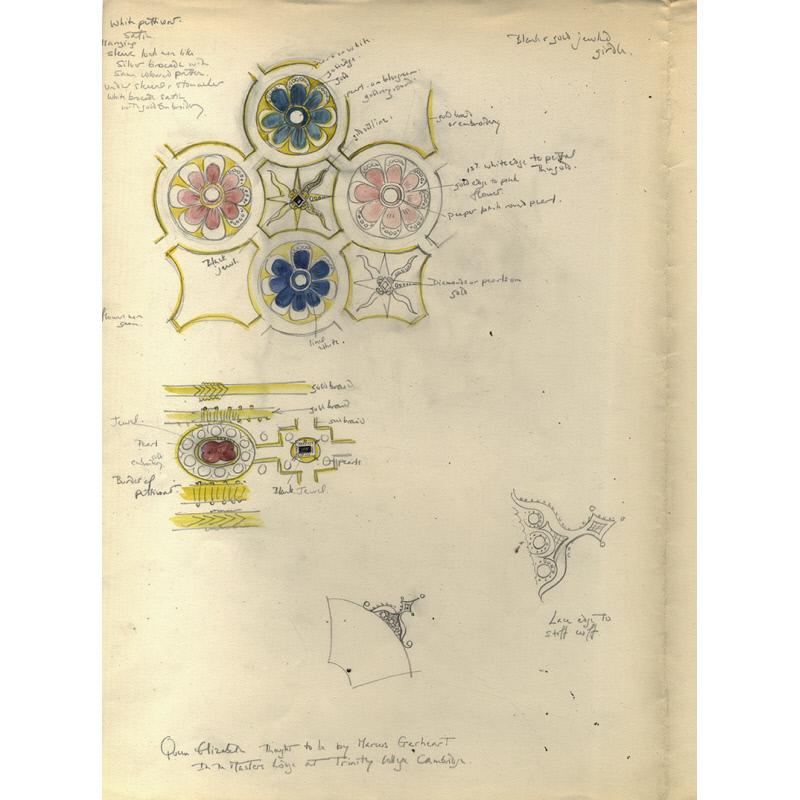 White petticoat.
Satin.
Hanging
sleeve
Silver brocade with
Same coloured pattern.
under sleeve & stomacher
White brocade satin
with gold embroidery
Black & gold jewelled
girdle.
white.
gold edge.
gold
pearl
gold outline.
gold braid
or embroidery
1st. white edge to petal
then gold.
gold edge to pink
flower.
deeper pink round pearl.
Black
jewel.
Diamonds or pearls on
gold
flowers
seem.
line
white.
gold braid
gold braid
Jewel.
braid
Pearl
gold
embroidery
pearls
Border of
petticoat.
Black Jewel.
Lace edge to
stiff cuff.
Queen Elizabeth thought to be by Marcus Gerheart
In the Masters Lodge at Trinity College Cambridge.